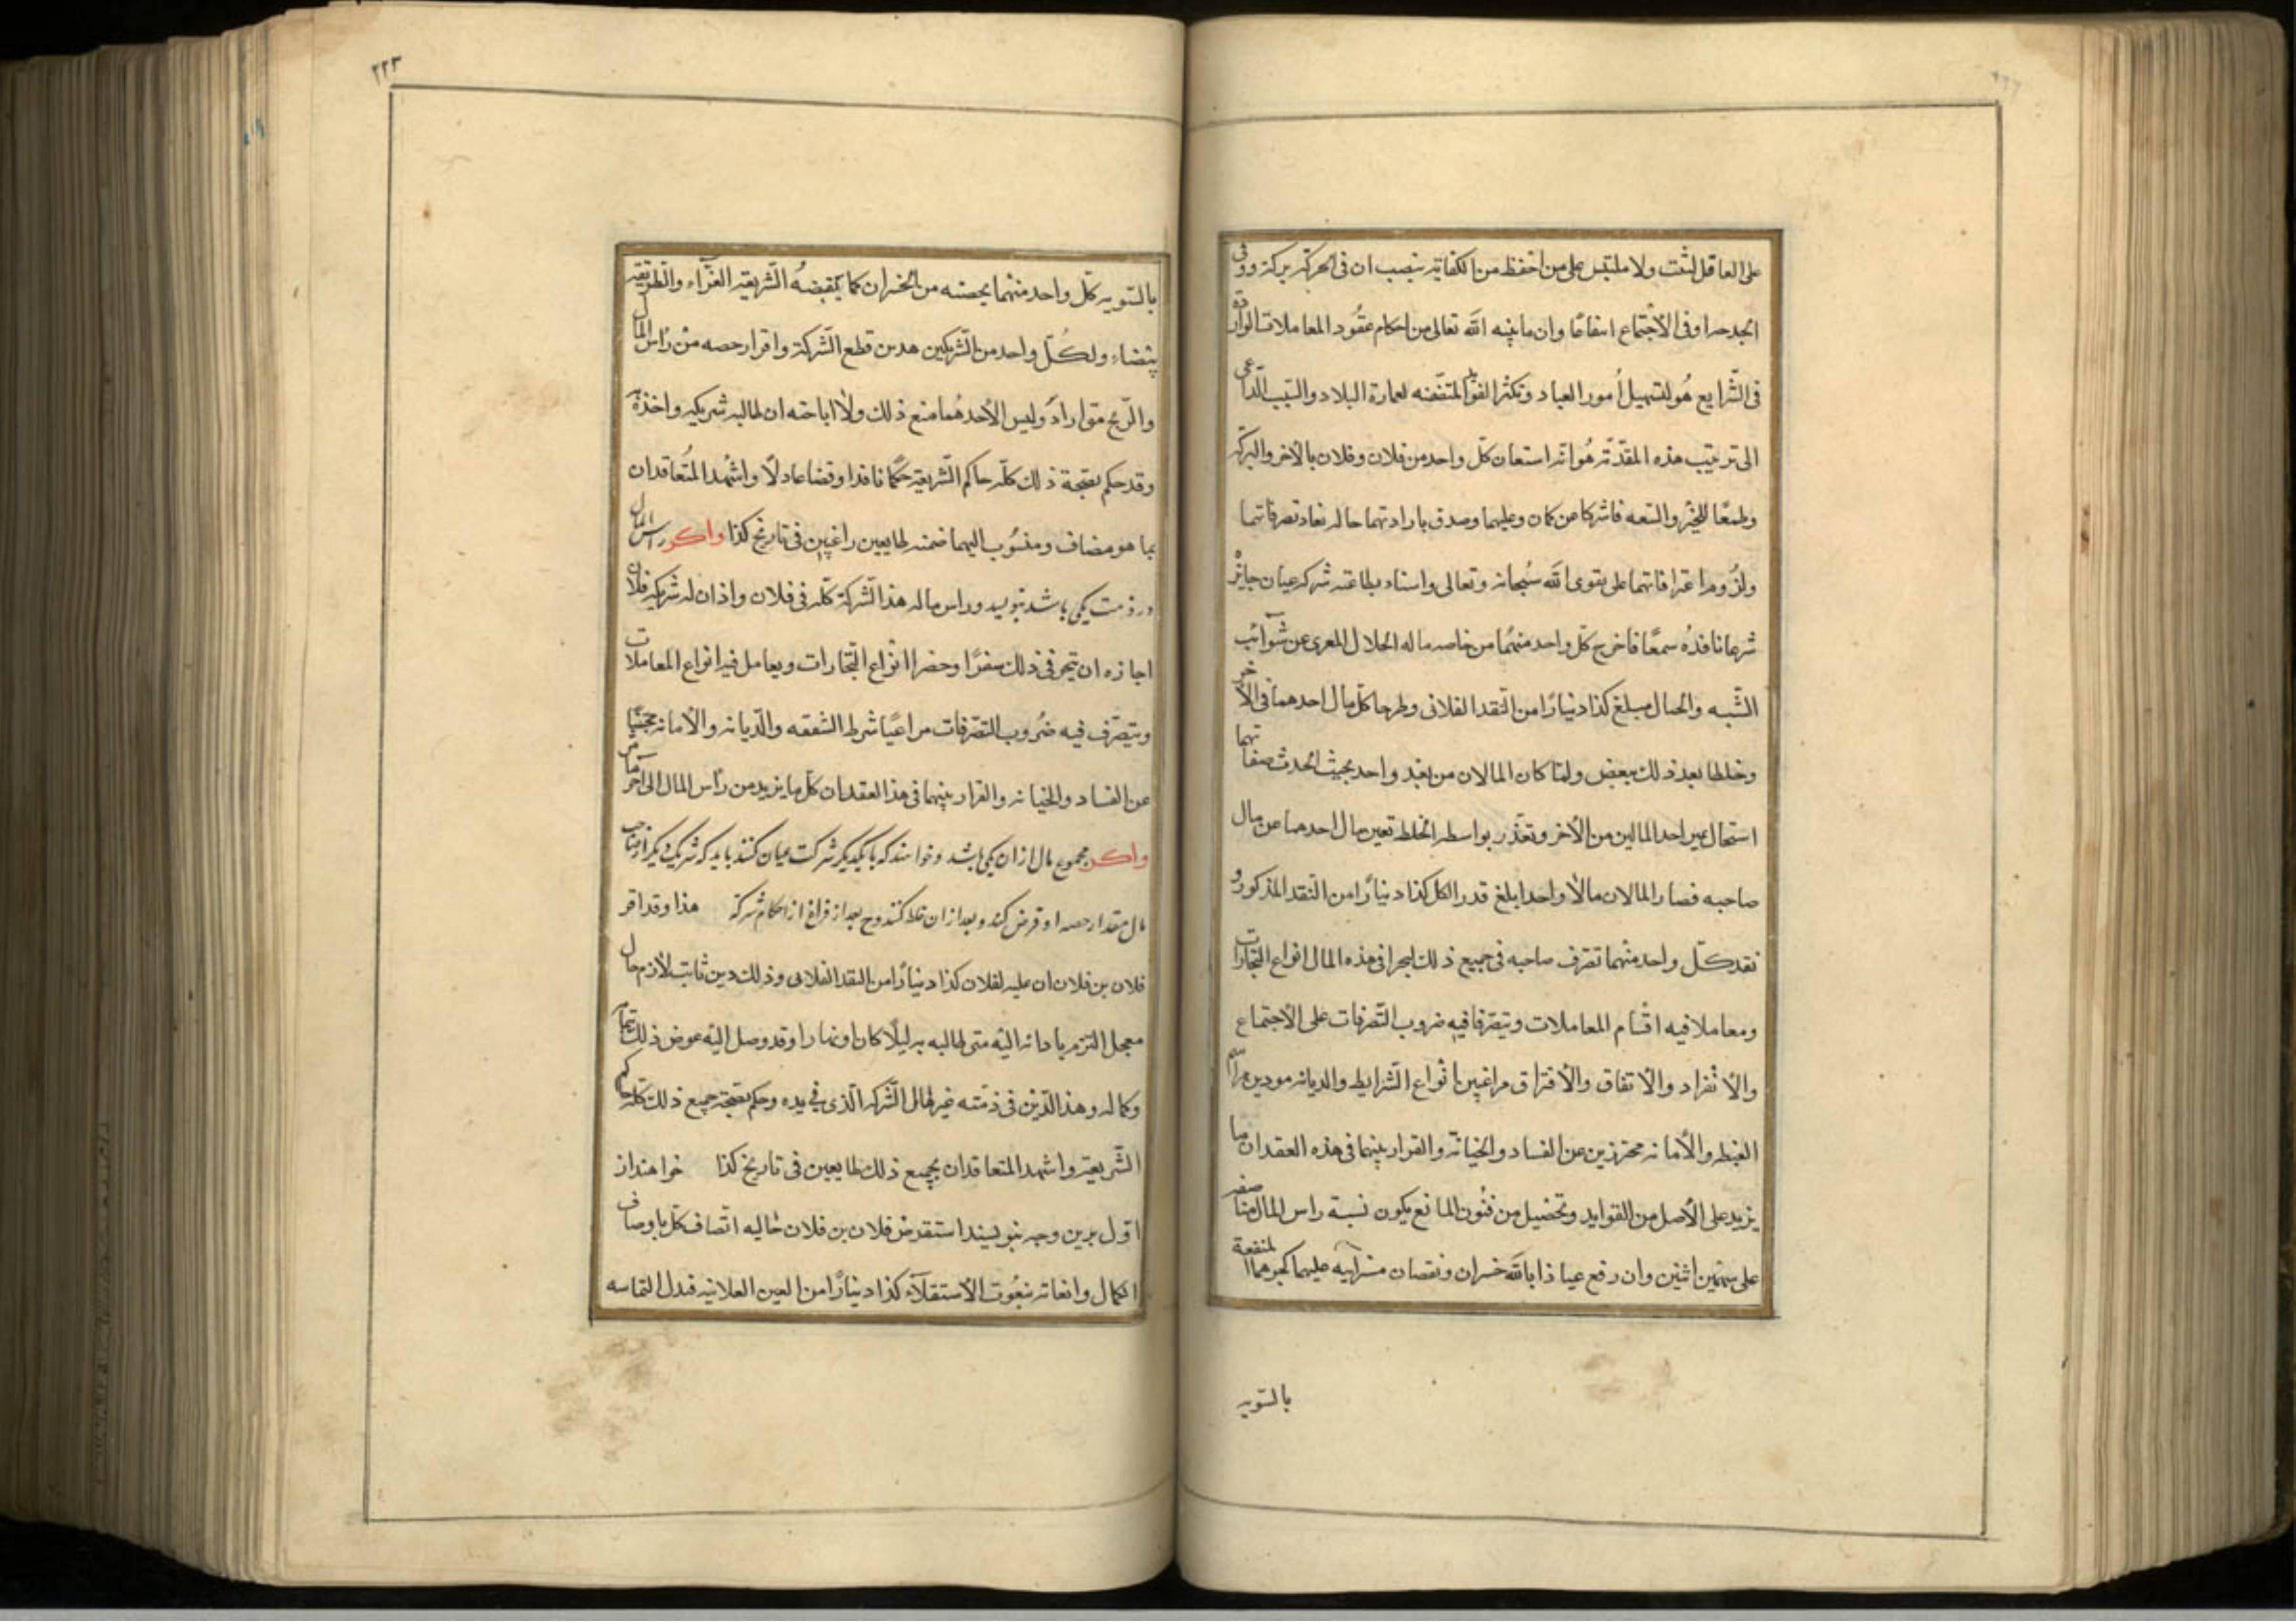 على العاقل لثبت ولا ملتبس على من احفظ من الكفاية بنصب ان فى الحركة بركة ووفى
الجد حدا وفى الأجتماع انتفاعًا وان ما بينه الله تعالى من احكام عقُود المعاملات الواردة
فى الشّرايع هُو لتسهيل اُمور العباد وتكثر الفوا المتفّضه لعمارة البلاد والسّبب الدّاعى
الى ترتيب هذه المقدّمة هُو انّه استعان كلّ واحد من فلان وفلان بالأخر والبركة
وطمعًا للخير والسّعه فاشركا عن كمان وعليهما وصدق بارادتهما حاله نعاد تصرفاتهما
ولزُوم اعترافاتهما على بقوى الله سُبحانه وتعالى واسناد بطاعته شركة عيان جايزْ
شرعا نافذه سمعًا فاخرج كلّ واحد منهُما من خاصه ماله الحلال المعرى عن شوآئب
الشّبه والحال مبلغ كذا دينارًا من النّقد الفلانى وطرحا كلّ مال احدهما فى الأخر
وخلطا بعد ذلك ببعض ولمّا كان المالان من بعد واحد بحيث الحدث صفاتهما
استحال عين احد المالين من الأخر وتعذّر بواسطه الخلط تعين مال احدهما عن مال
صاحبه فصار المالان مالاً واحدا بلغ قدر الكل كذا دينارًا من النقد المذكور و
نقد كلّ واحد منهما تصرف صاحبه فى جميع ذلك ليجرا فى هذه المال انواع التّجارات
ومعاملا فيه اقسام المعاملات وتيصّرفا فيه ضروب التّصرفات على الأجتماع
والأنفراد والأتفاق والأفتراق مراغبين انواع الشّرايط والديانه مودين مراسم
الغبطه والأمانه محترذين عن الفساد والخيانة والقرار بينهما فى هذه العقد ان ما
يزيد على الأصل من الفوايد وتحضيل من فنُون المنافع يكون نسبة راس المال منا صفه
على سهمين اثنين وان رفع عياذا بالله خسران ونقصان منرآتيه عليهما كجبرهما المنفعة
بالسّويه
٢٢٣
بالسّويه كلّ واحد منهما بحصته من الخسران كما يقتضهُ الشّريعة الغرّآء والطّريقة
بيضاء ولكُلّ واحد من الشّريكين هدىن قطع الشّركة واقرار حصه من رأس المال
والرّبح متى اراد وليس الأحدهُما منع ذلك ولا اباحته ان طالبه شريكه واخذة
وقد حكم بصّحة ذلك كلّه حاكم الشّريعة حكمًا نافذا وقضا عادلاً واشهد المتُعاقدان
بما هو مضاف ومنسُوب اليهما ضمنه طايعين راغبين فى تاريخ كذا واكر راس المال
در ذمت يكى باشد بنويسد وراس ماله هذا الشّركة كلّه فى فلان واذان له شريكه فلان
اجازه ان تيجر فى ذلك سفرًا وحضرا انواع التّجارات ويعامل فيه انواع المعاملات
وتيصّرف فيه ضُروب التصّرفات مراعيًا شرط الشفقه والدّيانه والأمانه مجتنبًا
عن الفساد والخيانه والقرار بينهما فى هذا العقد ان كلّ ما يزيد من رأس المال الى آخر ما مر
واكر مجموع مال ازان يكى باشد وخواهند كه بايكديكر شركت عيان كنند بايد كه شريك ديكر از صاحب
مال مقدار حصه او قرض كند وبعد از ان خلط كنند وح بعد از فراغ از احكام شركة هذا وقد اقر
فلان بن فلان ان عليه لفلان كذا دينارًا من النقد الفلانى وذلك دين ثابت لأزم حال
معجل التزم باداته اليه متى طالبه به ليلاً كان او نهارا وقد وصل اليه عوض ذلك بتمامه
وكماله وهذا الدّين فى ذمّته غير مال الشّركه الّذى فى يده وحكم بصّحة جميع ذلك كلّه حاكم
الشّريعة واشهد المتعاقدان بجميع ذلك طايعين فى تاريخ كذا خواهند از
اوّل برين وجه بنويسند استقرض فلان بن فلان حاليه اتّصاف كلّ باوصاف
الكمال وانعاته بنعُوت الأستقلآء كذا دينارًا من العين العلانيه فبدل التماسه